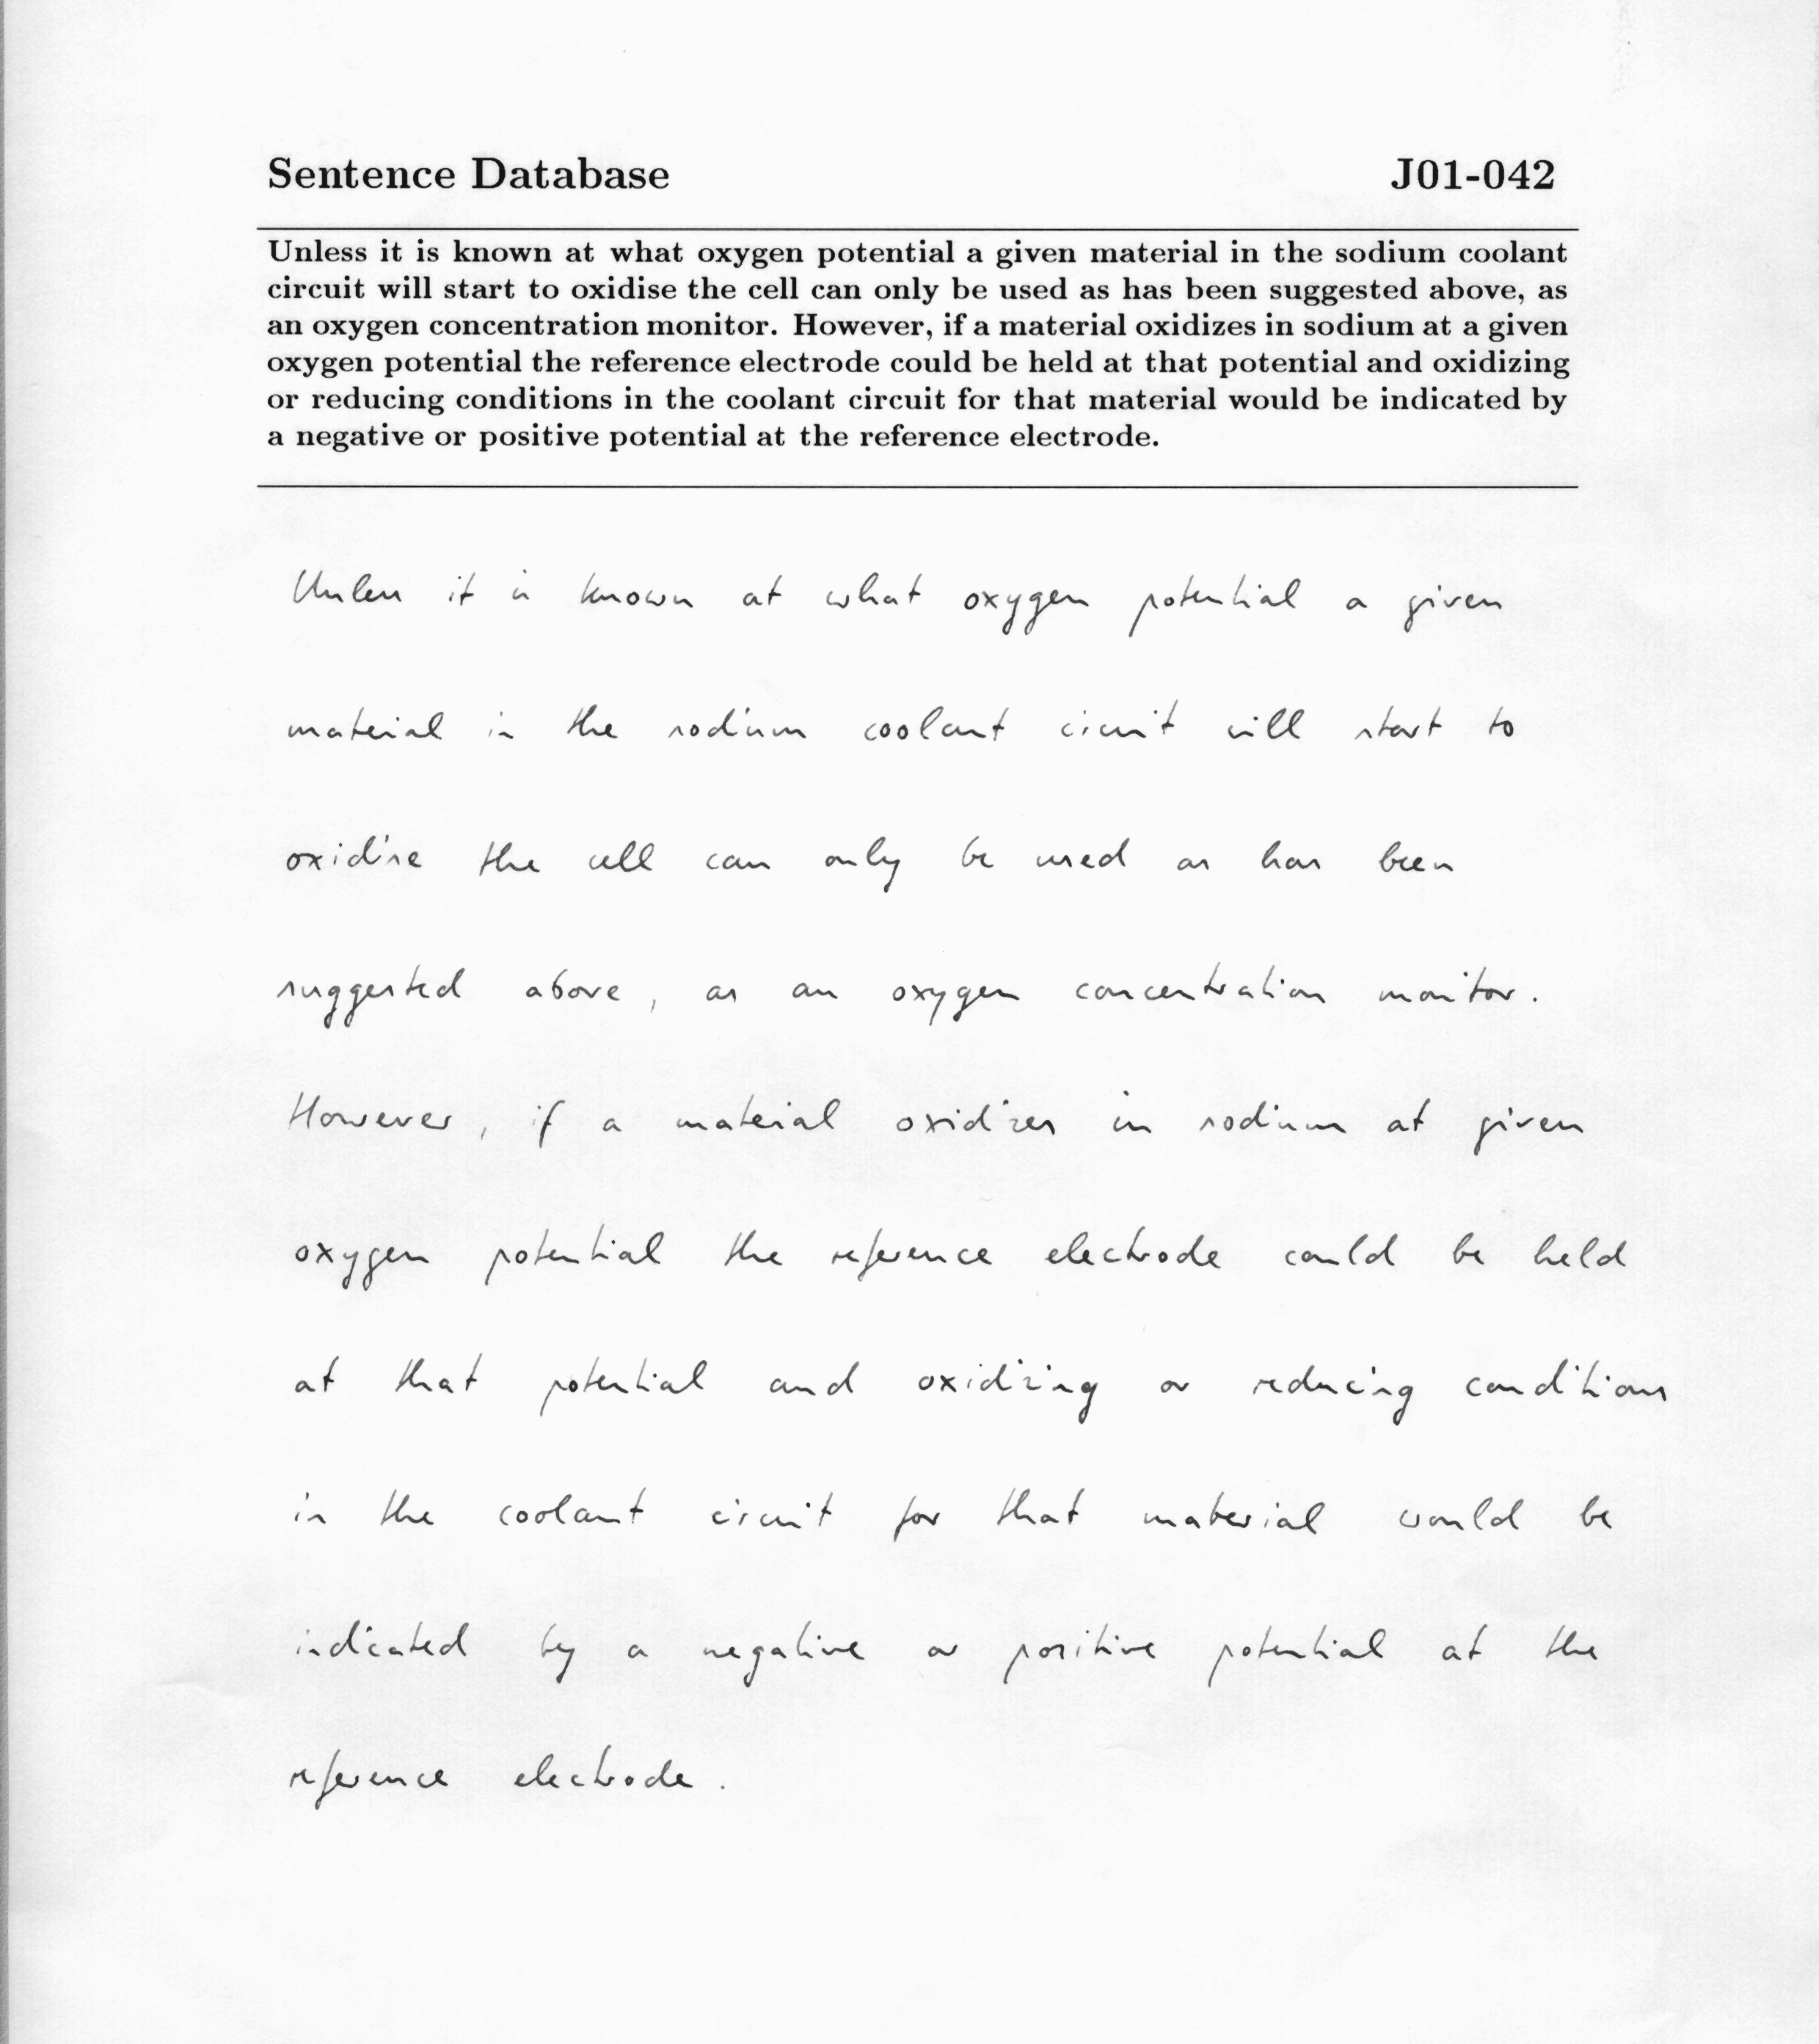 Sentence Database J01-042
Unless it is known at what oxygen potential a given material in the sodium coolant
circuit will start to oxidise the cell can only be used as has been suggested above, as
an oxygen concentration monitor. However, if a material oxidizes in sodium at a given
oxygen potential the reference electrode could be held at that potential and oxidizing
or reducing conditions in the coolant circuit for that material would be indicated by
a negative or positive potential at the reference electrode.
Unless it is known at what oxygen potential a given
material in the sodium coolant circuit will start to
oxidise the cell can only be used as has been
suggested above, as an oxygen concentration monitor.
However, if a material oxidizes in sodium at given
oxygen potential the reference electrode could be held
at that potential and oxidizing or reducing conditions
in the coolant circuit for that material would be
indicated by a negative or positive potential at the
reference electrode.